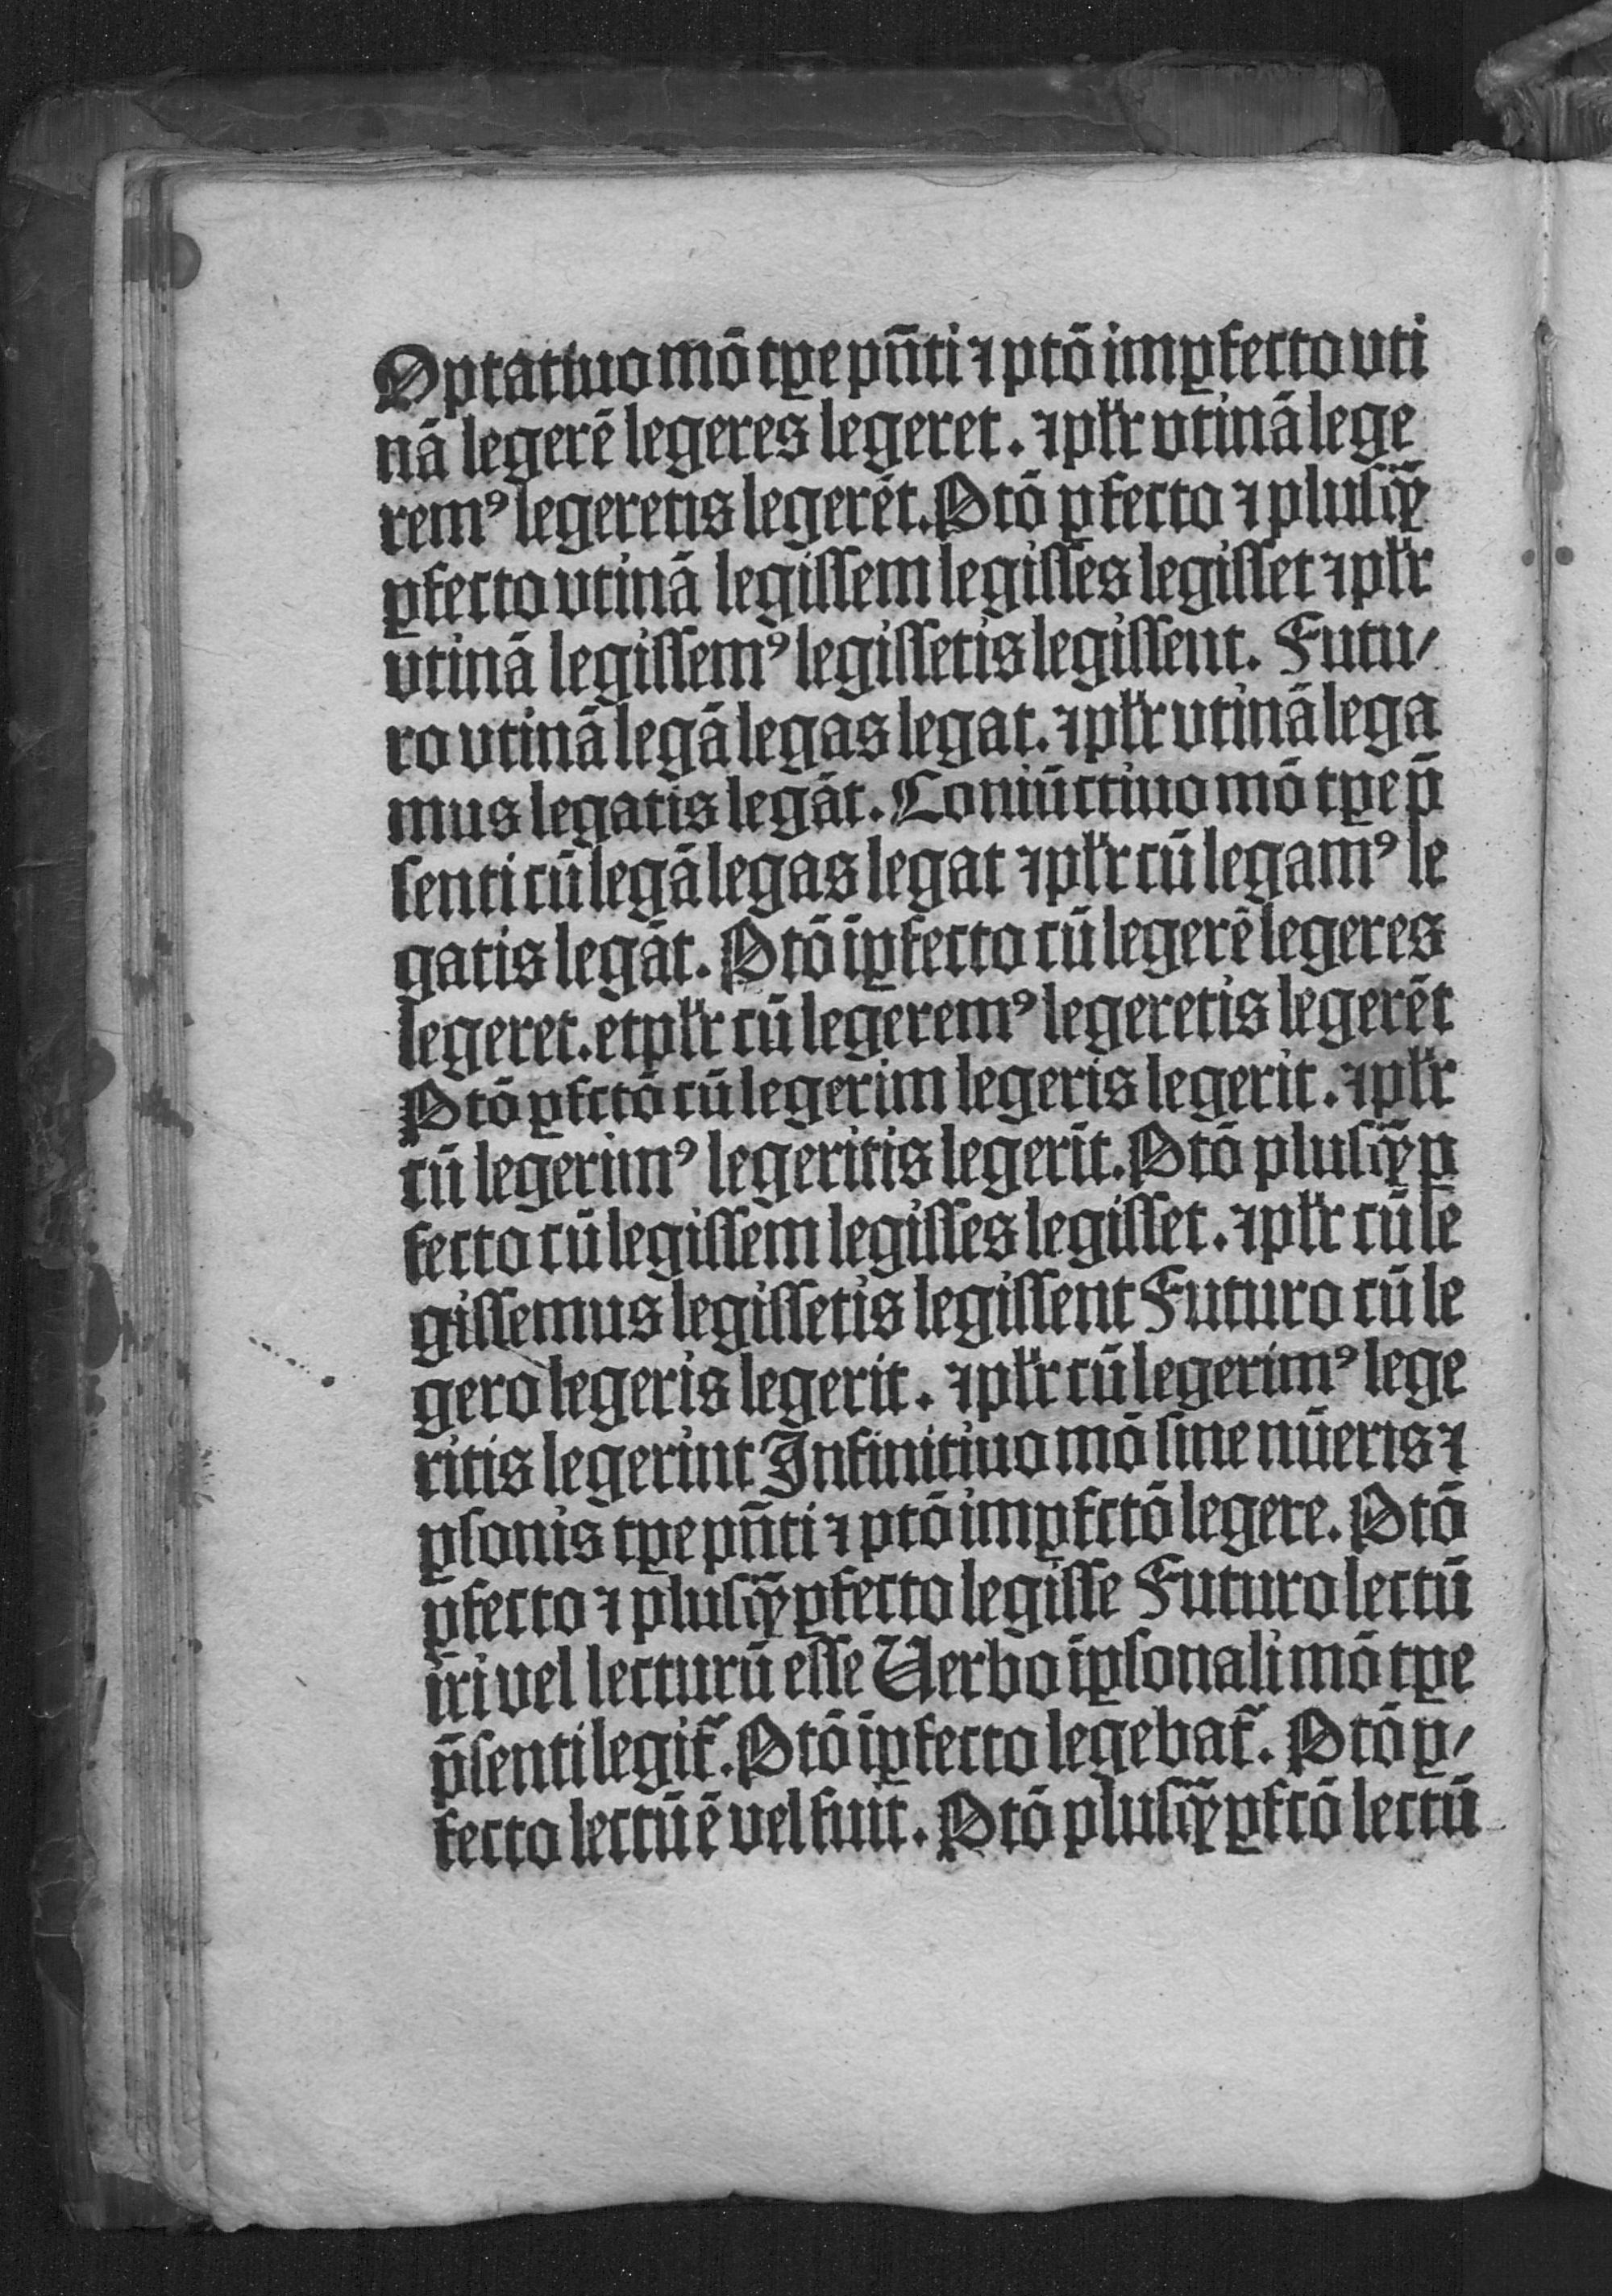 Optatiuo mō tꝑe pn̄ti ⁊ ptō imꝑfecto vti
nā legerē legeres legeret. ⁊ pl̄r vtinā lege
remꝰ legeretis legerēt. Ptō ꝑfecto ⁊ plusꝙ̄
ꝑfecto vtinā legissem legisses legisset ⁊ pl̄r
vtinā legissemꝰ legissetis legissent. Futu⸗
ro vtinā legā legas legat. ⁊ pl̄r vtinā lega
mus legatis legāt. Coniūctiuo mō tꝑe p̄
senti cū legā legas legat ⁊ pl̄r cū legamꝰ le
gatis legāt. Ptō īꝑfecto cū legerē legeres
legeret. et pl̄r cū legeremꝰ legeretis legerēt
Ptō ꝑfctō cū legerim legeris legerit. ⁊ pl̄r
cū legerimꝰ legeritis legerīt. Ptō plusꝙ̄ ꝑ
fecto cū legissem legisses legisset. ⁊ pl̄r cū le
gissemus legissetis legissent Futuro cū le
gero legeris legerit. ⁊ pl̄r cū legerimꝰ lege
ritis legerint Infinitiuo mō sine nūeris ⁊
ꝑsonis tꝑe pn̄ti ⁊ ptō imꝑfctō legere. Ptō
ꝑfecto ⁊ plusꝙ̄ꝑfecto legisse Futuro lectū
iri vel lecturū esse Verbo īꝑsonali mō tꝑe
p̄senti legit᷑. Ptō īꝑfecto legebat᷑. Ptō ꝑ⸗
fecto lectū ē vel fuit. Ptō plusꝙ̄ꝑfctō lectū